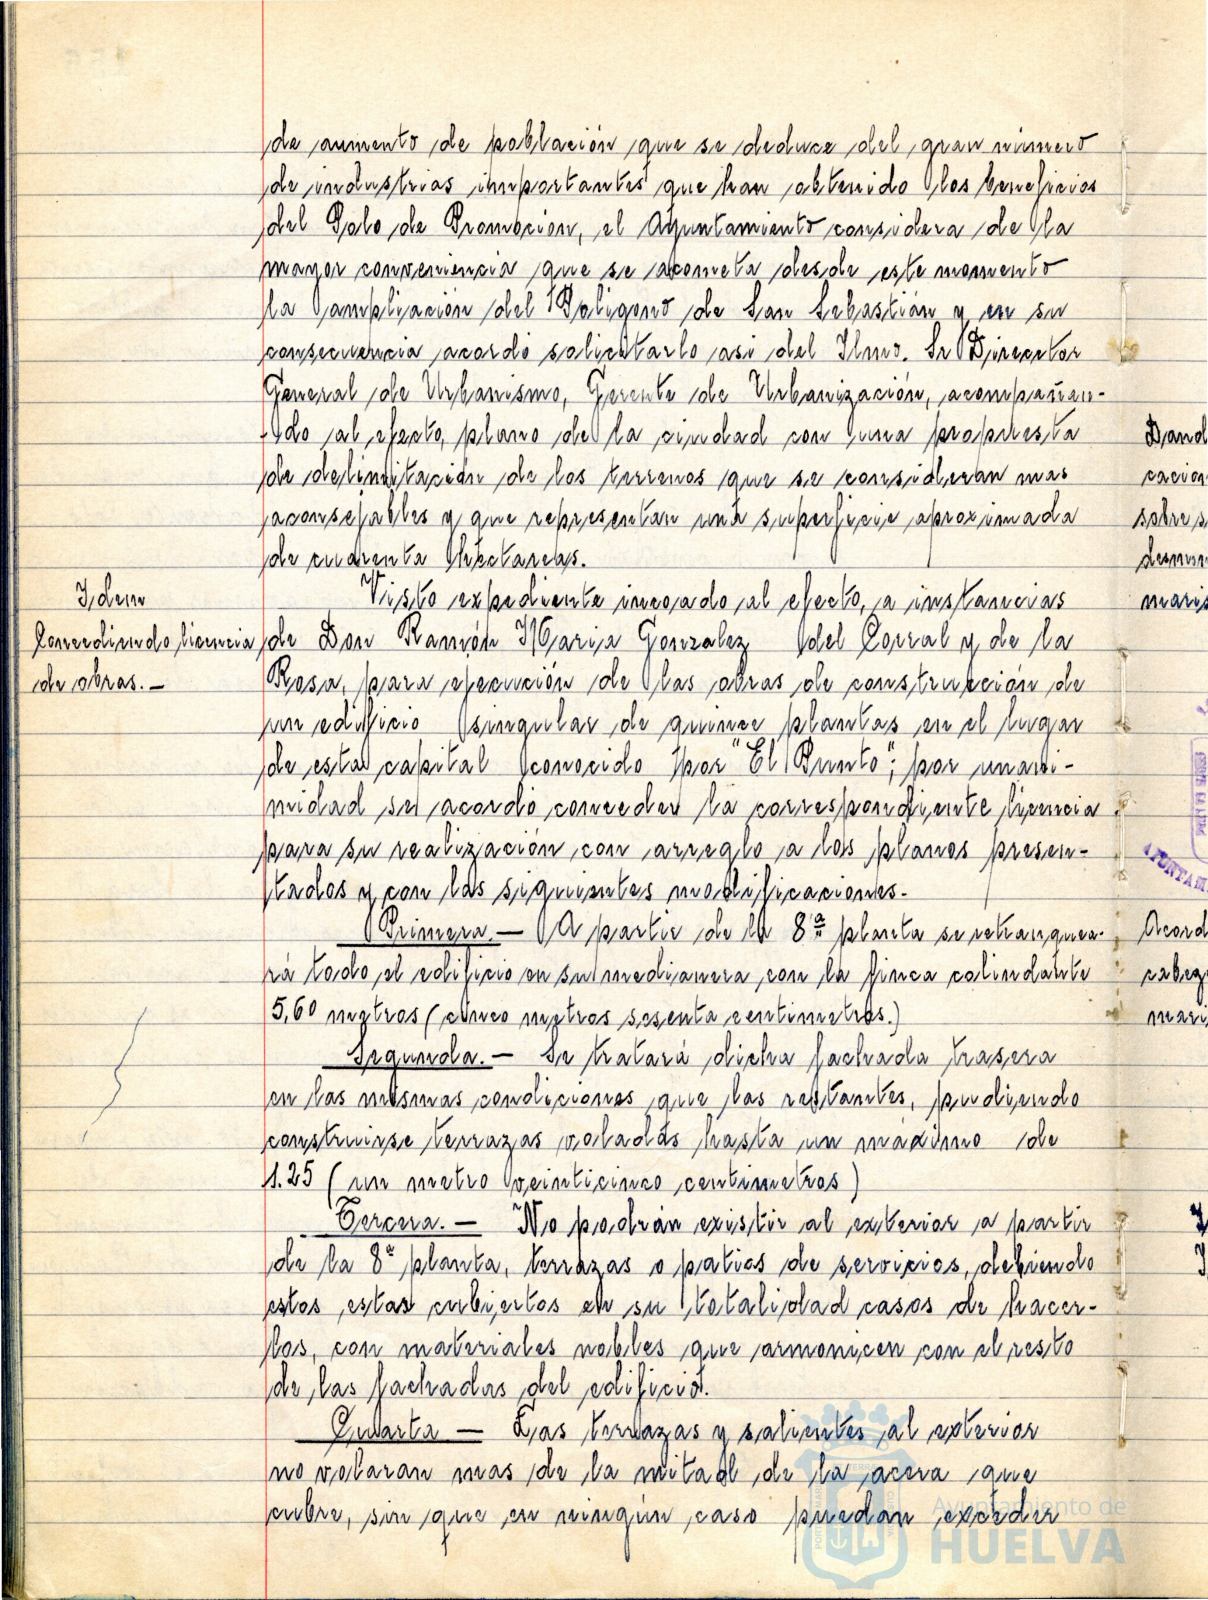 de aumento de población que se deduce del gran número
de industrias importantes que han obtenido los beneficios
del Polo de Promoción, el Ayuntamiento considera de la
mayor conveniencia que se acometa desde este momento
la ampliación del Poligono de San Sebastián y en su
consecuencia acordó solicitarlo asi del Ilmo. Sr Director
General de Urbanismo, Gerente de Urbanización, acompañan-
do al efecto, plano de la ciudad con una propuesta
de delimitación de los terrenos que se consideran mas
aconsejables y que representan una superficie aproximada
de cuarenta hectareas.
Idem
Concediendo licencia
de obras.-
Visto expediente incoado al efecto, a instancias
de Don Ramón Maria Gonzalez del Corral y de la
Rosa, para ejecución de las obras de construcción de
un edificio singular de quince plantas en el lugar
de esta capital conocido por "El Punto"; por unani-
midad se acordó conceder la correspondiente licencia
para su realización con arreglo a los planos presen-
tados y con las siguientes modificaciones.
Primera.- A partir de la 8ª planta se retranquea-
rá todo el edificio en su medianera con la finca colindante
5,60 metros (cinco metros sesenta centimetros.)
Segunda.- Se tratará dicha fachada trasera
en las mismas condiciones que las restantes, pudiendo
construirse terrazas voladas hasta un máximo de
1.25 (un metro veinticinco centimetros)
Tercera.- No podrán existir al exterior a partir
de la 8ª planta, terrazas o patios de servicios, debiendo
estos estar cubiertos en su totalidad casos de hacer-
los, con materiales nobles que armonicen con el resto
de las fachadas del edificio.
Cuarta - Las terrazas y salientes al exterior
no volaran mas de la mitad de la acera que
cubre, sin que en ningún caso puedan exceder
Ayuntamiento de
HUELVA